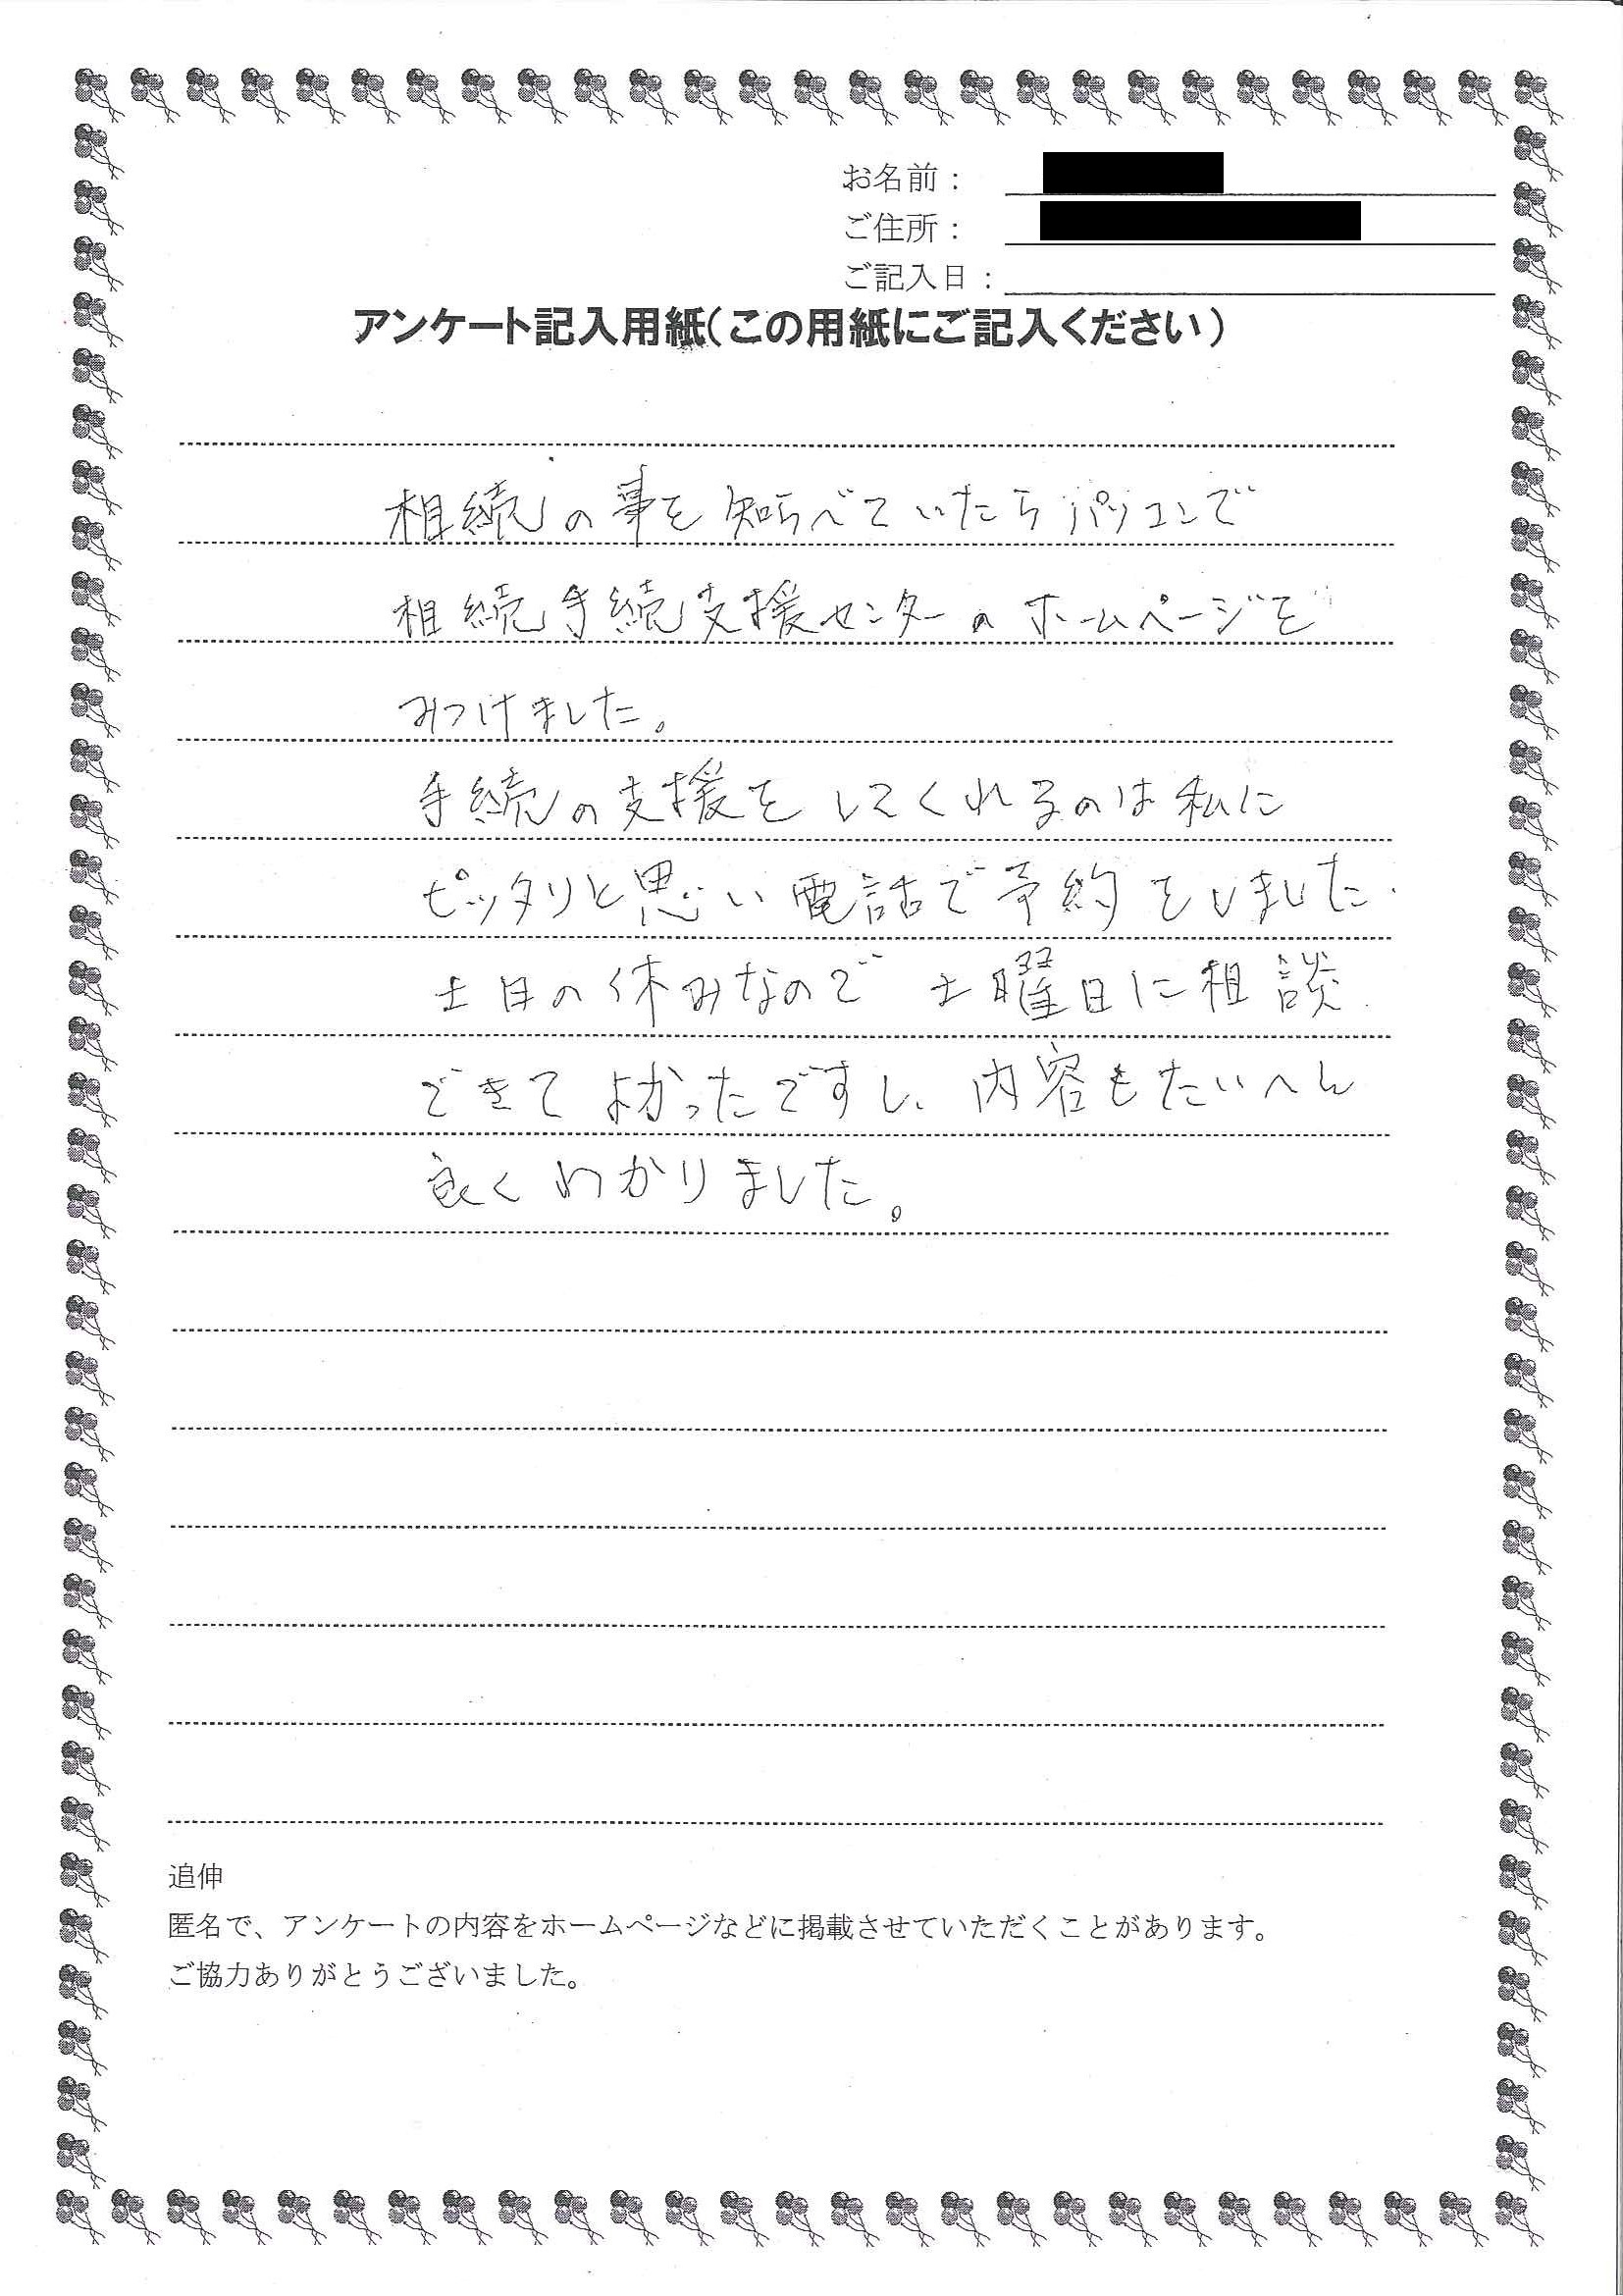 お名前：
ご住所：
ご記入日：
アンケート記入用紙（この用紙にご記入ください）
相続の事を知らべていたらパソコンで
相続手続支援センターのホームページを
みつけました。
手続の支援をしてくれるのは私に
ピッタリと思い電話で予約をしました.
土日の休みなので 土曜日に相談
できてよかったですし、内容もたいへん
良くわかりました。
追伸
匿名で、アンケートの内容をホームページなどに掲載させていただくことがあります。
ご協力ありがとうございました。